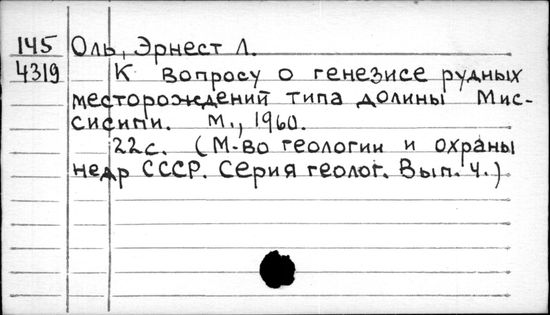 145 Оль, Эрнест Л.
4319 К вопросу о генезисе рудных
месторождений типа долины Мис-
сисипи. М., 1960.
22с. (М-во геологии и охраны
недр СССР. Серия геолог. Вып. 4.)